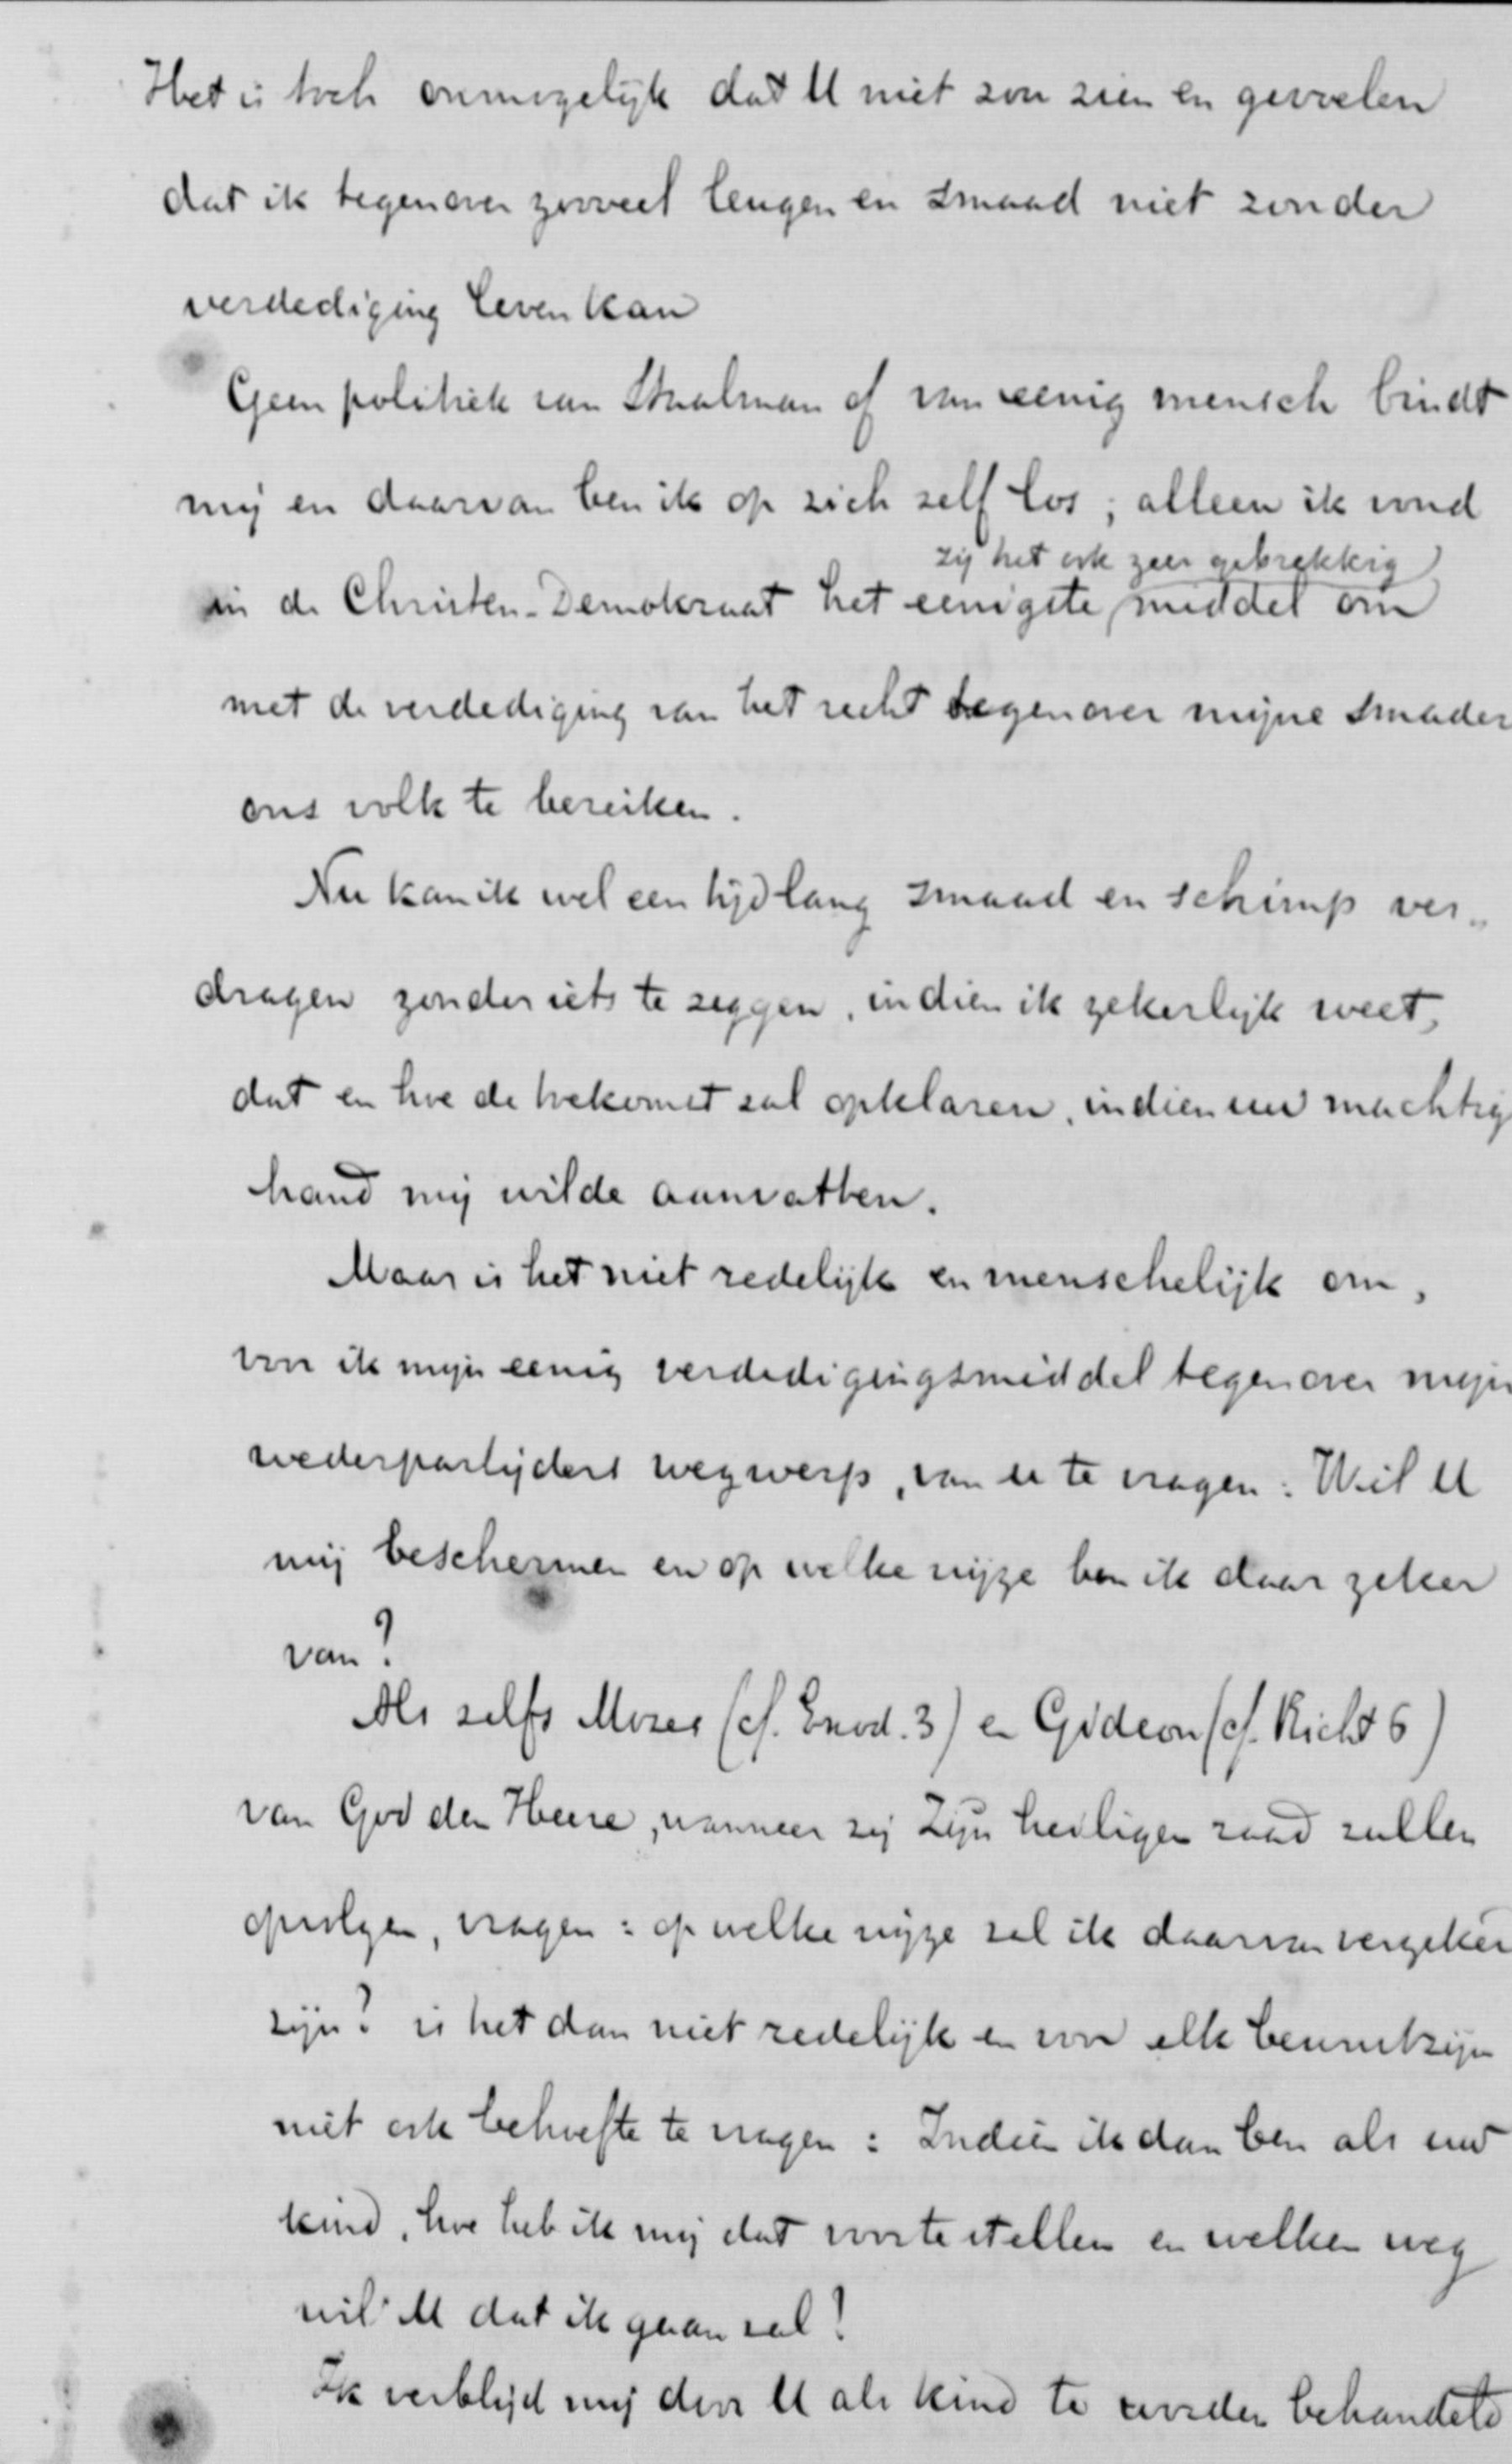 Het is toch onmogelijk dat U niet zou zien en gevoelen
dat ik tegenover zooveel leugen en smaad niet zonder
verdediging leven kan
Geen politiek van Staalman of van eenig mensch bindt
mij en daarvan ben ik op zich zelf los; alleen ik vond
zij het ook zeer gebrekkig
in de Christen-Demokraat het eenigste middel om
met de verdediging van het recht tegenover mijne smaders
ons volk te bereiken.
Nu kan ik wel een tijd lang smaad en schimp ver-
dragen zonder iets te zeggen, indien ik zekerlijk weet,
dat en hoe de toekomst zal opklaren, indien uw machtig
hand mij wilde aanvatten.
Maar is het niet redelijk en menschelijk om,
voor ik mijn eenig verdedigingsmiddel tegenover mijn
wederpartijders wegwerp, van u te vragen: Wil U
mij beschermen en op welke wijze ben ik daar zeker
van?
Als zelfs Mozes (cf. Exod. 3) en Gideon (cf. Richt 6)
van God den Heere, wanneer zij Zijn heiligen raad zullen
opvolgen, vragen: op welke wijze zal ik daarvan verzeker
zijn? is het dan niet redelijk en voor elk bewustzijn
niet ook behoefte te vragen: Indien ik dan ben als uw
kind, hoe heb ik mij dat voor te stellen en welken weg
wil U dat ik gaan zal!
Ik verblijd mij door U als kind te worden behandeld